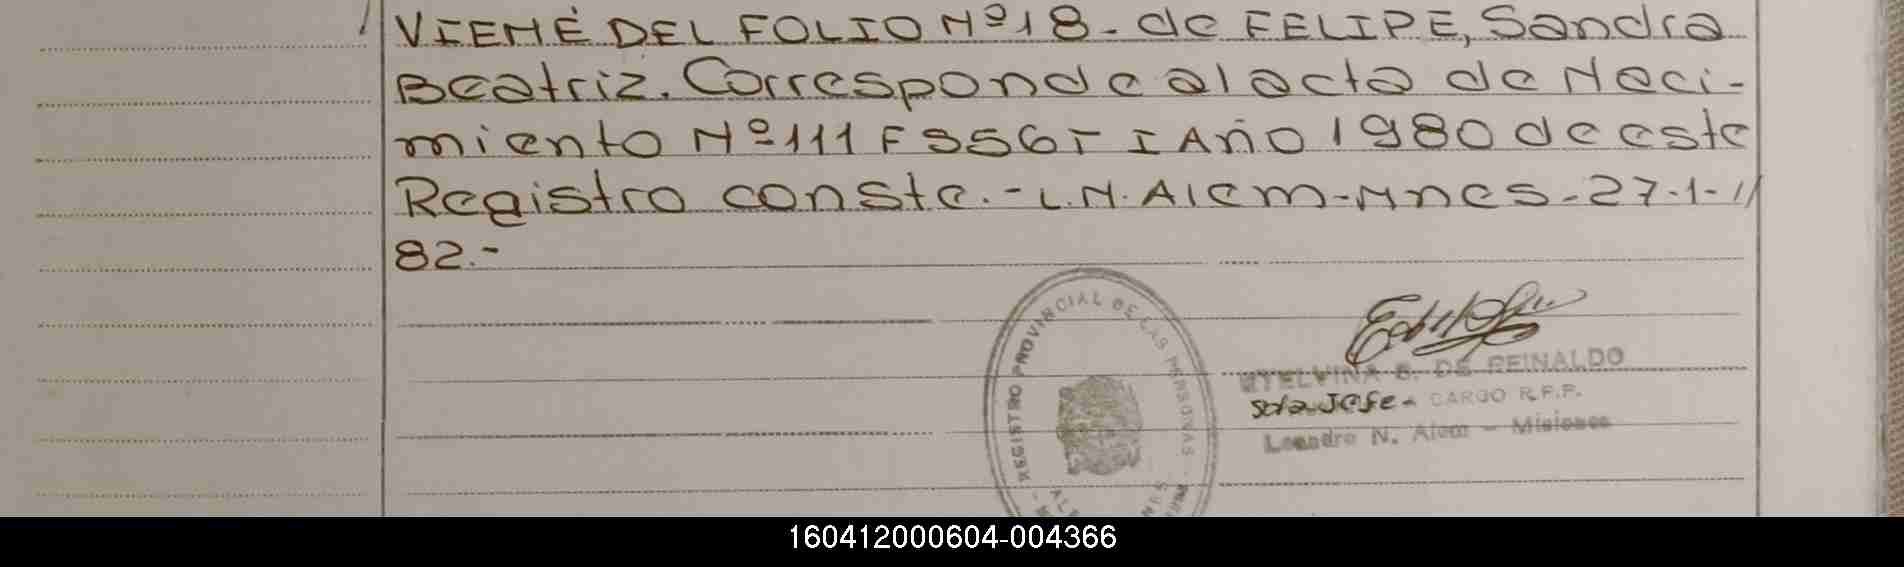 VIENE DEL FOLIO Nº 18.- de FELIPE, Sandra
Beatriz. Corresponde al acta de Naci-
miento Nº 111 F 356 T I Año 1980 de este
Registro conste.- L.N. Alem-Mnes.-27-1-//
82.-
REGISTRO PROVINCIAL DE LAS PERSONAS
ETELVINA B. DE REINALDO
Sda Jefe - CARGO R.P.P.
Leandro N. Alem - Misiones
160412000604-004366